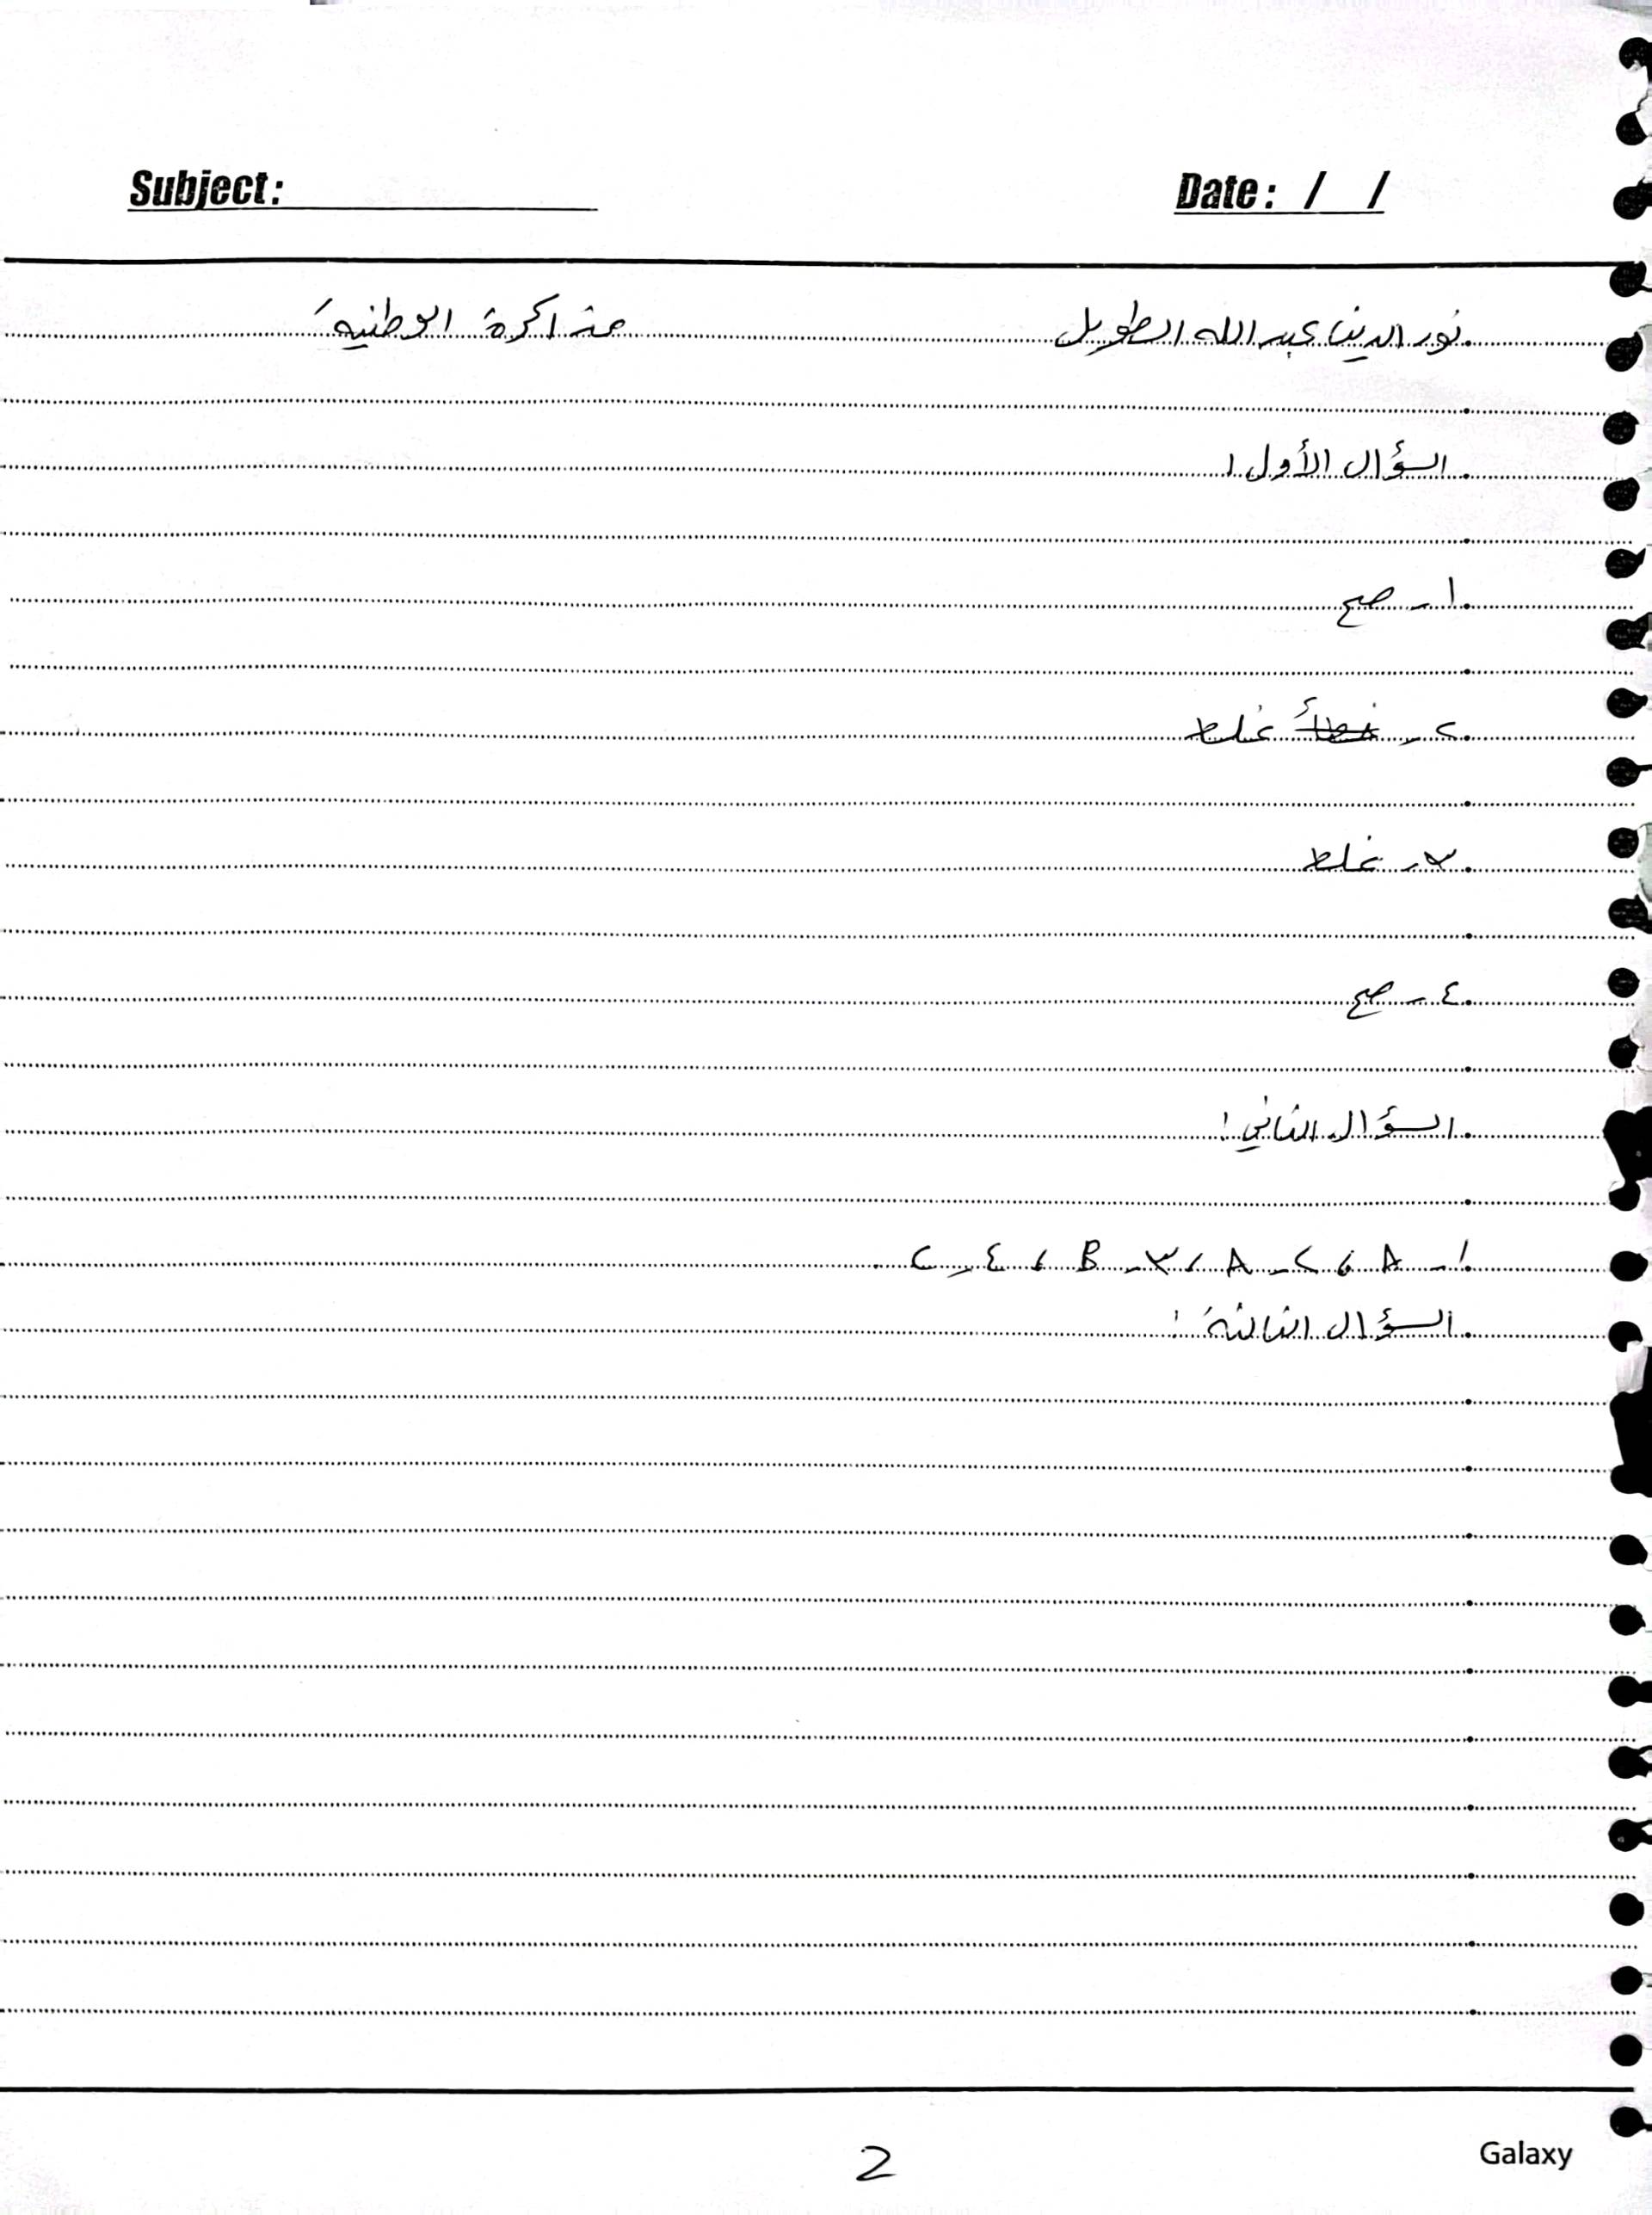 Subject: Date: / /
نور الدين عبد الله الطويل مذاكرة الوطنية
السؤال الأول:
١- صح
٢- خطأ غلط
٣- غلط
٤- صح
السؤال الثاني:
١- A ، ٢- A ، ٣- B ، ٤- C .
السؤال الثالثة:
2
Galaxy